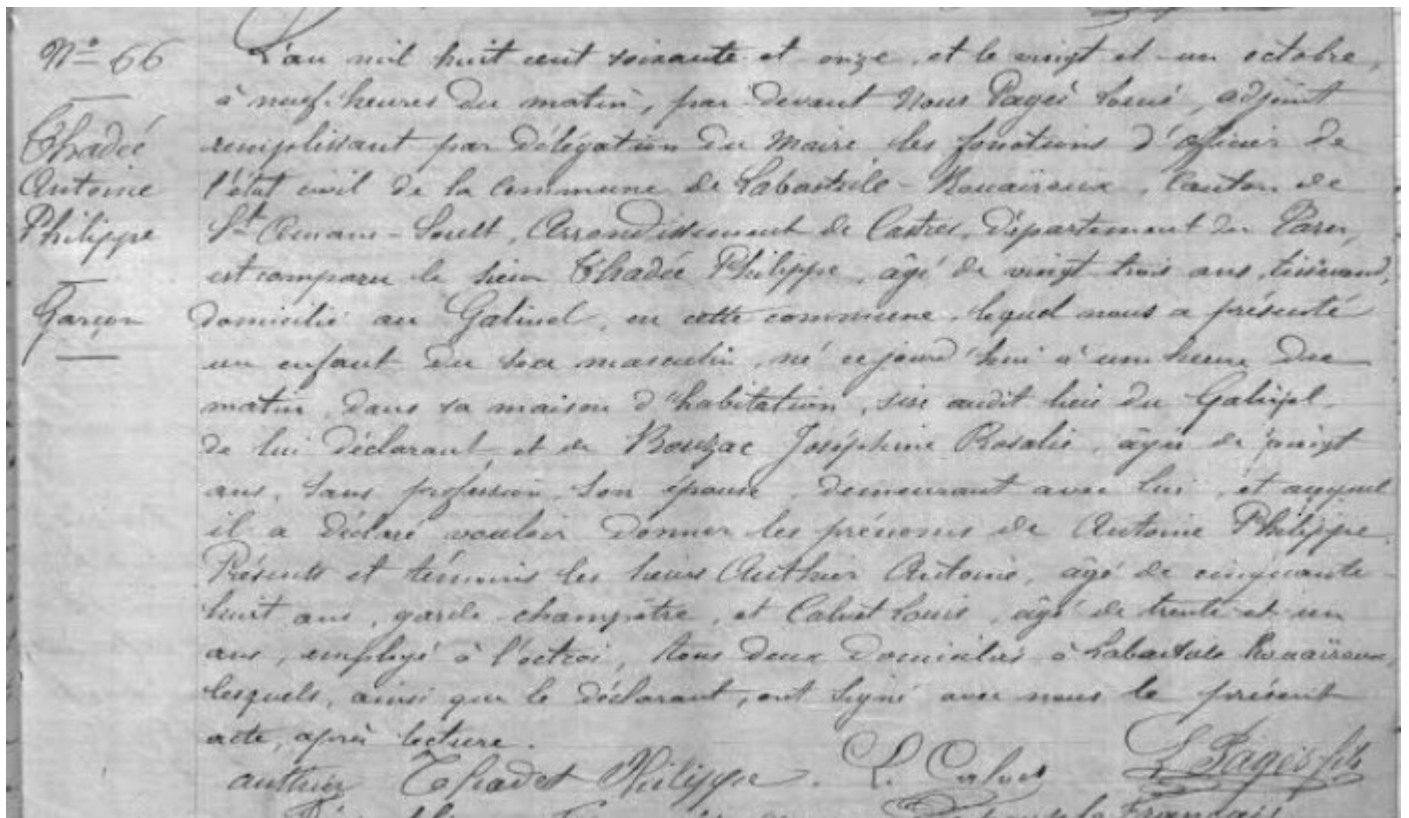 Nº 66
Thadée
Antoine
Philippe
Garçon
L'an mil huit cent soixante et onze, et le vingt et un octobre,
à neuf heures du matin, par devant Nous Pagès Louis, adjoint
remplissant par délégation du Maire les fonctions d'officier de
l'état civil de la Commune de Labastide-Rouairoux, Canton de
St Amans-Soult, Arrondissement de Castres, Département du Tarn,
est comparu le sieur Thadée Philippe, âgé de vingt trois ans, tisserand,
domicilié au Galinel, en cette commune, lequel nous a présenté
un enfant du sexe masculin, né cejourd'hui à une heure du
matin, dans sa maison d'habitation, sise audit lieu du
de lui déclarant et de Josephine Rosalie, âgée de vingt
ans, sans profession, son épouse, demeurant avec lui, et auquel
il a déclaré vouloir donner les prénoms de Antoine Philippe.
Présents et témoins les sieurs Authier Antoine, âgé de cinquante
huit ans, garde champêtre, et Calvet Louis, âgé de trente et un
ans, employé à l'octroi, tous deux domiciliés à Labastide Rouairoux,
lesquels, ainsi que le déclarant, ont signé avec nous le présent
acte, après lecture.
authier Thadet Philippe. L. Calvet L. Pagès fils